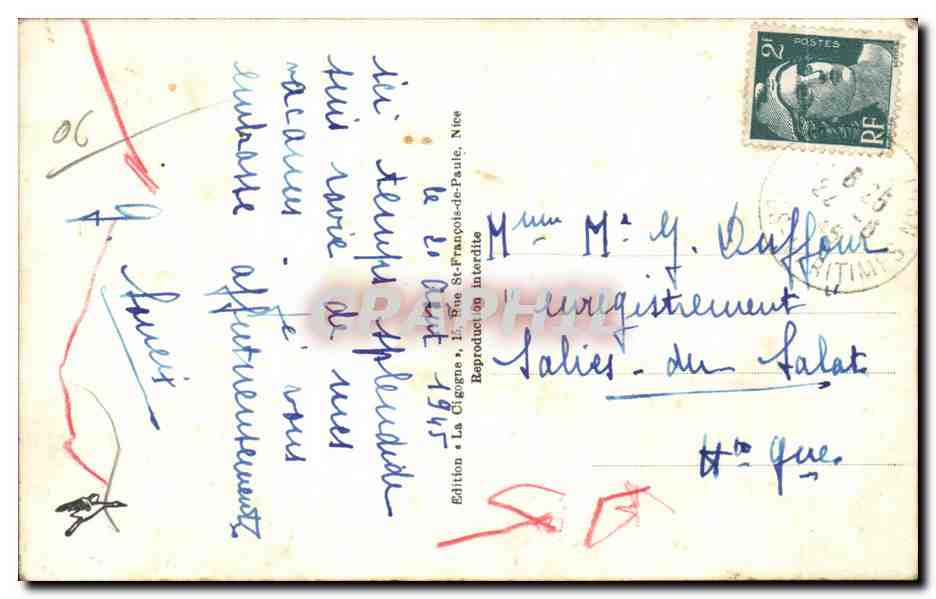 le 20 août 1945
ici temps splendide
suis ravie de mes
vacances. Je vous
embrasse affectueusement
Edition « La Cigogne », 15, Rue St-François-de-Paule, Nice
Reproduction interdite
2F
POSTES
RF
Mme Mr G. Duffour
enregistrement
Salies-du-Salat
Hte Gne.
90
CPAPHIL